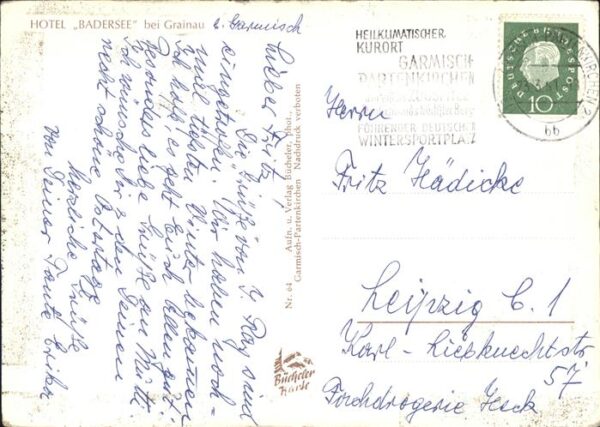 HOTEL „BADERSEE" bei Grainau b. Garmisch
Lieber Fritz!
Die Grüße von J. Ray sind
eingetroffen. Wir haben noch-
mal tollsten Winter bekommen
Ich hoffe, es geht Euch allen gut.
Besonders liebe Grüße an Mutti.
Ich wünsche Dir u. den Deinen
recht schöne Ostertage
Herzliche Grüße
von Deiner Tante Erika
Nr. 64 Aufn. u. Verlag Bücheler, phot.,
Garmisch-Partenkirchen Nachdruck verboten
Bücheler
Karte
HEILKLIMATISCHER
KURORT
GARMISCH
PARTENKIRCHEN
ZUGSPITZE
FÜHRENDER DEUTSCHER
WINTERSPORTPLATZ
DEUTSCHE BUNDESPOST
10
bb
Herrn
Fritz Hädicke
Leipzig C. 1
Karl-Liebknechtstr
57
Fachdrogerie Heck